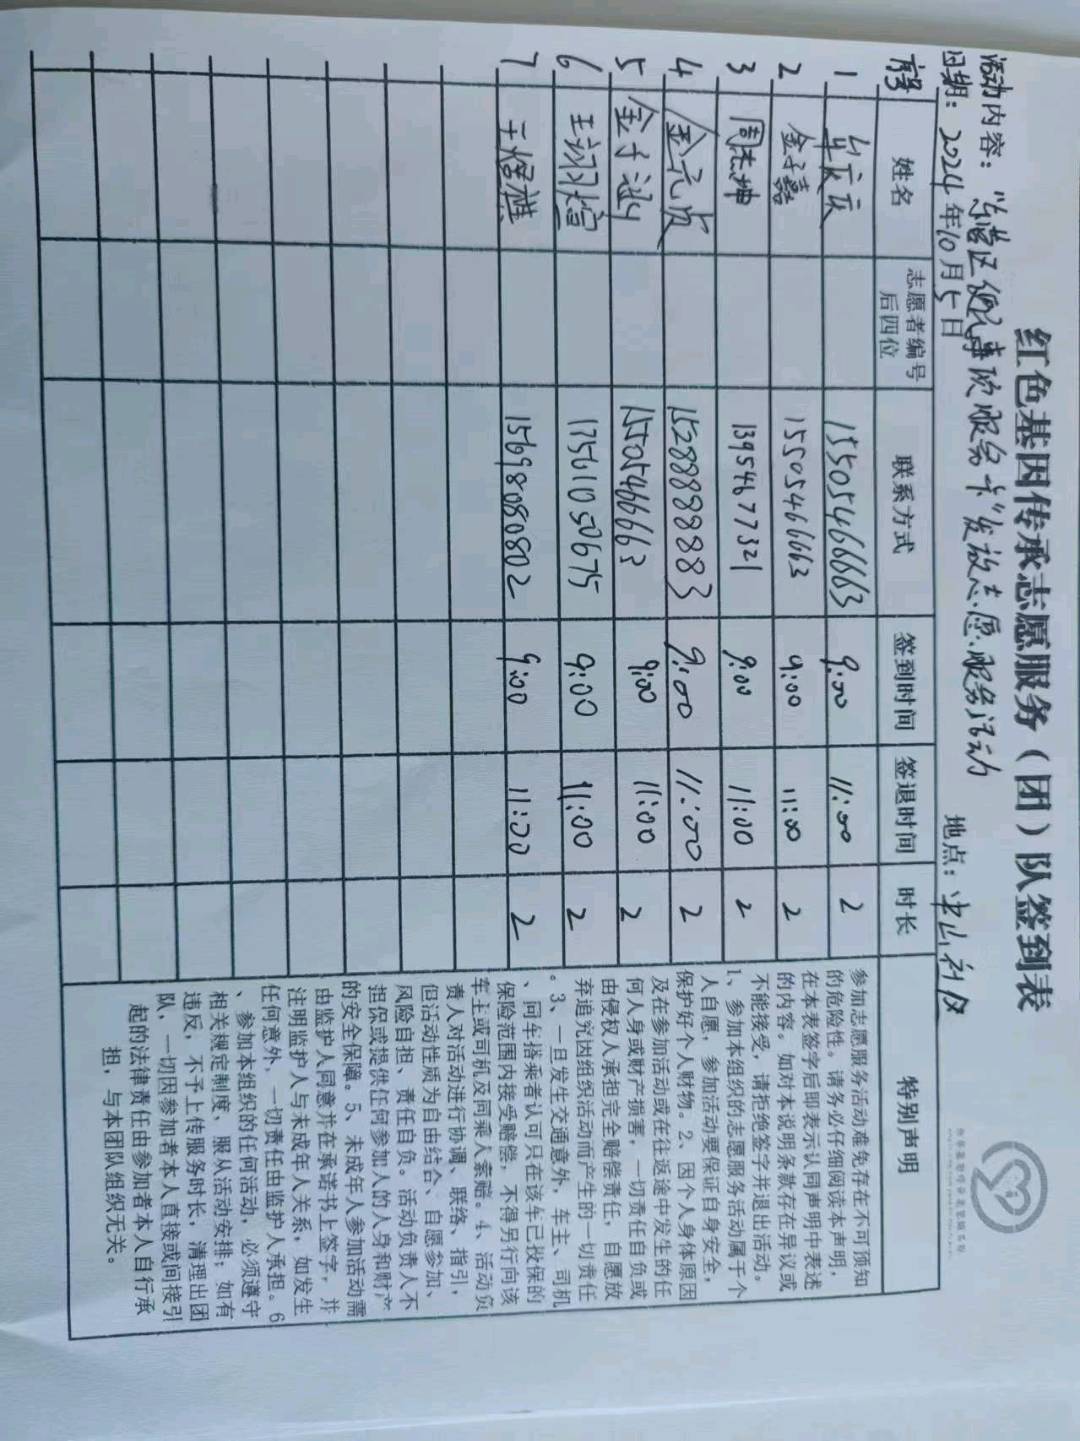 红色基因传承志愿服务（团）队签到表
活动内容：“东营区组织事项服务卡”发放志愿服务活动
日期：2024年10月5日 地点：中山社区
序号 姓名 志愿者编号后四位 联系方式 签到时间 签退时间 时长 特别声明
1 15505466663 9:00 11:00 2
2 金子嘉 15505466663 9:00 11:00 2
3 周杰坤 13954677321 9:00 11:00 2
4 金元贞 15288888883 9:00 11:00 2
5 金子涵 15505466663 9:00 11:00 2
6 王翊煊 17561050675 9:00 11:00 2
7 王煜祺 15698080802 9:00 11:00 2
参加志愿服务活动难免存在不可预知
的危险性。请务必仔细阅读本声明，
在本表签字后即表示认同声明中表述
的内容。如对本说明条款存在异议或
不能接受，请拒绝签字并退出活动。
1、参加本组织的志愿服务活动属于个
人自愿，参加活动要保证自身安全，
保护好个人财物。2、因个人身体原因
及在参加活动或在往返途中发生的任
何人身或财产损害，一切责任自负或
由侵权人承担完全赔偿责任，自愿放
弃追究因组织活动而产生的一切责任
。3、一旦发生交通意外，车主、司机
、同车搭乘者认可只在该车已投保的
保险范围内接受赔偿，不得另行向该
车主或司机及同乘人索赔。4、活动负
责人对活动进行协调、联络、指引，
但活动性质为自由结合、自愿参加、
风险自担、责任自负。活动负责人不
担保或提供任何参加人的人身和财产
的安全保障。5、未成年人参加活动需
由监护人同意并在承诺书上签字，并
注明监护人与未成年人关系，如发生
任何意外，一切责任由监护人承担。6
、参加本组织的任何活动，必须遵守
相关规定制度、服从活动安排；如有
违反，不予上传服务时长，清理出团
队，一切因参加者本人直接或间接引
起的法律责任由参加者本人自行承
担，与本团队组织无关。